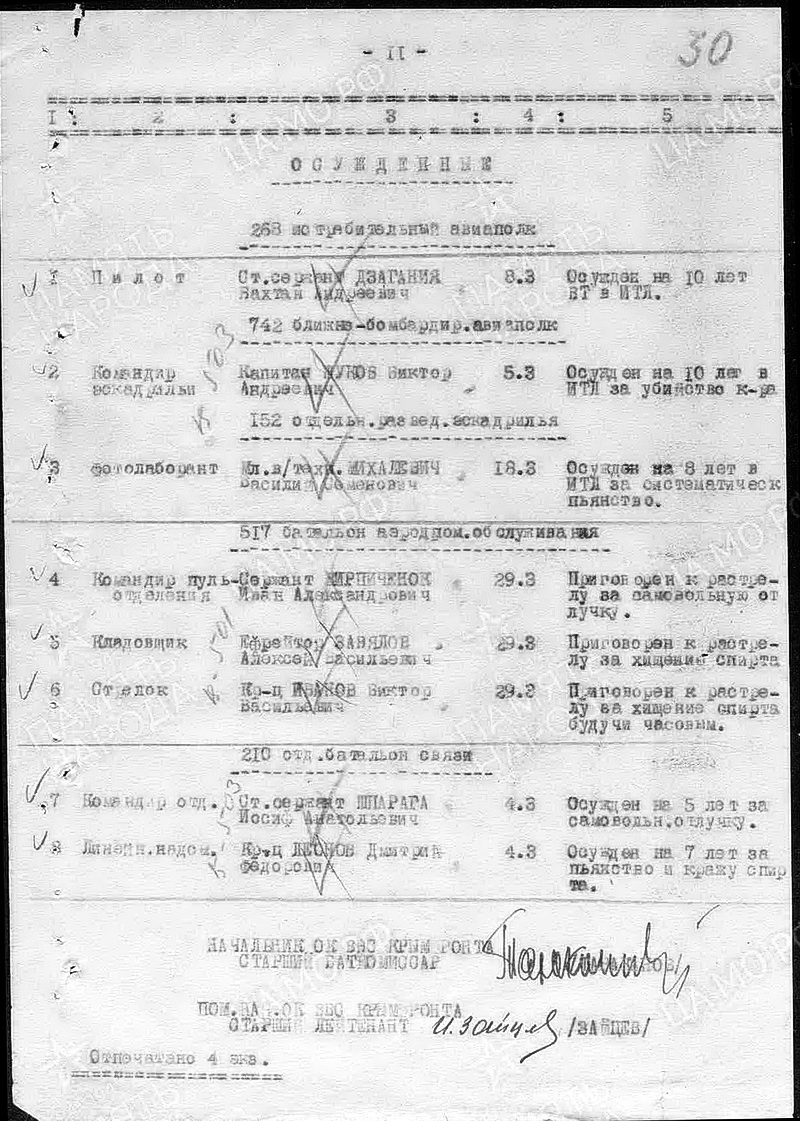 - II -
30
I : 2 : 3 : 4 : 5
ОСУЖДЕННЫЕ
268 истребительный авиаполк
1 Пилот Ст.сержант ДЗАГАНИЯ 8.3 Осужден на 10 лет
Вахтан Андреевич ВТ в ИТЛ.
742 ближне-бомбардир.авиаполк
2 Командир Капитан Виктор 5.3 Осужден на 10 лет в
эскадрильи Андреевич ИТЛ за убийство к-ра
152 отдельн.развед.эскадрилья
3 фотолаборант Мл.в/техн. МИХАЛЕВИЧ 18.3 Осужден на 8 лет в
Василий Семенович ИТЛ за систематическ
пьянство.
517 батальон аэродром.обслуживания
4 Командир пуль- Сержант КИРПИЧЕНОК 29.3 Приговорен к расстре-
отделения Иван Александрович лу за самовольную от
лучку.
В-501
5 Кладовщик Ефрейтор ЗАВЯЛОВ 29.3 Приговорен к растре-
Алексей Васильевич лу за хищение спирта
6 Стрелок Кр-ц Виктор 29.3 Приговорен к растре-
Васильевич лу за хищение спирта
будучи часовым.
210 отд.батальон связи
7 Командир отд. Ст.сержант ШПАРАГА 4.3 Осужден на 5 лет за
Иосиф Анатольевич самовольн.отлучку.
8 Линейн.надсм. Кр-ц ЛЕОНОВ Дмитрий 4.3 Осужден на 7 лет за
Федорович пьянство и кражу спир
та.
НАЧАЛЬНИК ОК ВВС КРЫМФРОНТА
СТАРШИЙ БАТКОМИССАР
ПОМ.НАЧ.ОК ВВС КРЫМФРОНТА
СТАРШИЙ ЛЕЙТЕНАНТ И.Зайцев /ЗАЙЦЕВ/
Отпечатано 4 экз.
ПАМЯТЬ НАРОДА
ЦАМО.РФ